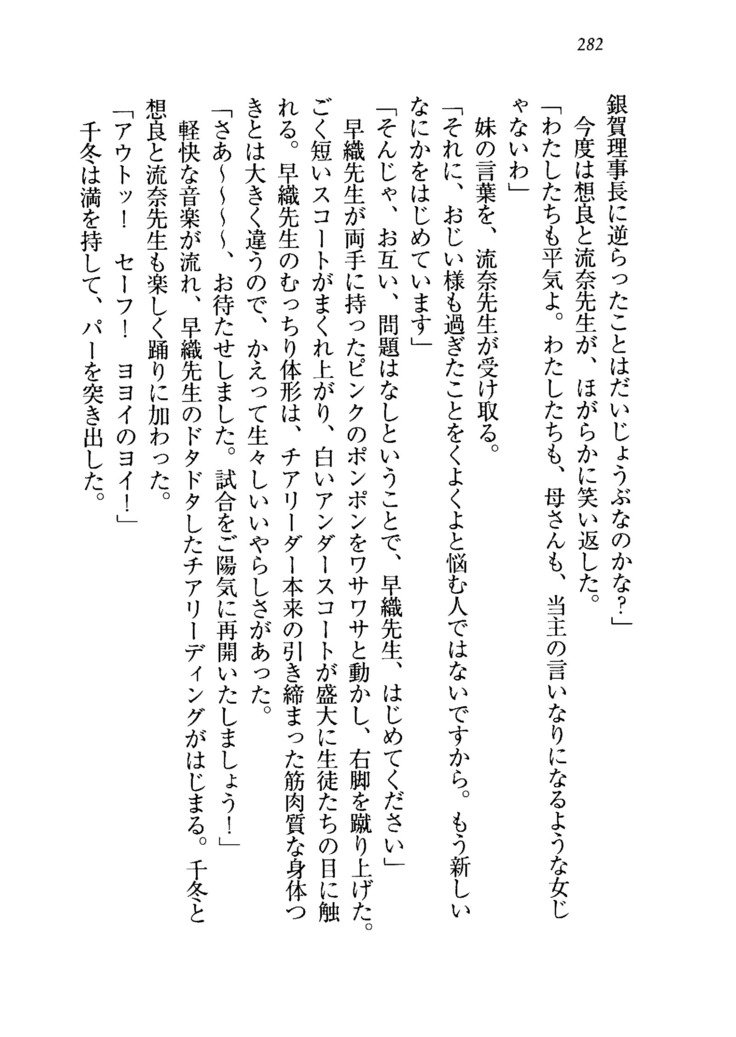 282
銀賀理事長に逆らったことはだいじょうぶなのかな？」
今度は想良と流奈先生が、ほがらかに笑い返した。
「わたしたちも平気よ。わたしたちも、母さんも、当主の言いなりになるような女じ
ゃないわ」
妹の言葉を、流奈先生が受け取る。
「それに、おじい様も過ぎたことをくよくよと悩む人ではないですから。もう新しい
なにかをはじめています」
「そんじゃ、お互い、問題はなしということで、早織先生、はじめてください」
早織先生が両手に持ったピンクのポンポンをワサワサと動かし、右脚を蹴り上げた。
ごく短いスコートがまくれ上がり、白いアンダースコートが盛大に生徒たちの目に触
れる。早織先生のむっちり体形は、チアリーダー本来の引き締まった筋肉質な身体つ
きとは大きく違うので、かえって生々しいいやらしさがあった。
「さあ～～～～、お待たせしました。試合をご陽気に再開いたしましょう！」
軽快な音楽が流れ、早織先生のドタドタしたチアリーディングがはじまる。千冬と
想良と流奈先生も楽しく踊りに加わった。
「アウトッ！　セーフ！　ヨヨイのヨイ！」
千冬は満を持して、パーを突き出した。